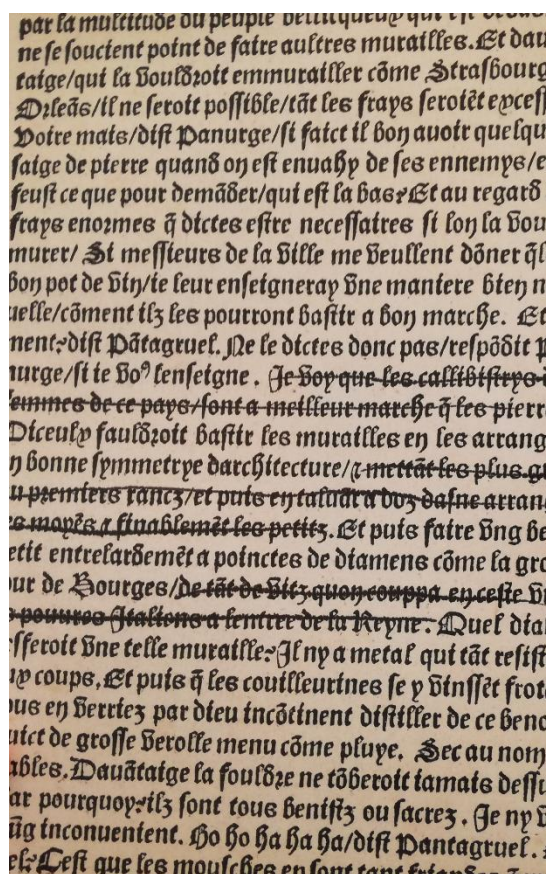 par la multitude du peuple bellicqueux qui est dedās
ne se soucient point de faire aultres murailles. Et dau
taige/qui la vouldroit emmurailler cōme Strasbourg
Orleās/il ne seroit possible/tāt les frays seroiēt excess
Voire mais/dist Panurge/si faict il bon auoir quelqu
saige de pierre quand on est enuahy de ses ennemys/e
feust ce que pour demāder/qui est la bas? Et au regard
frays enormes q̄ dictes estre necessaires si lon la vou
murer/ Si messieurs de la ville me veullent dōner q̄l
bon pot de vin/ie leur enseigneray vne maniere bien n
uelle/cōment ilz les pourront bastir a bon marche. Et
ment? dist Pātagruel. Ne le dictes donc pas/respōdit P
nurge/si ie voꝰ lenseigne. Je voy que les callibistrys
emmes de ce pays/sont a meilleur marche q̄ les pierr
Diceulx fauldroit bastir les murailles en les arrang
n bonne symmetrye darchitecture/⁊ mettāt les plus g
u premiers rancz/et puis en taluāt a doz dasne arran
s moyēs ⁊ finablemēt les petitz. Et puis faire vng be
etit entrelardemēt a poinctes de diamens cōme la gro
ur de Bourges/de tāt de vitz quon couppa en ceste v
s pouures Italiens a lentree de la Reyne. Quel dia
fferoit vne telle muraille? Il ny a metal qui tāt resist
ux coups. Et puis q̄ les couilleurines se y vinssēt frot
ous en verriez par dieu incōtinent distiller de ce beno
uict de grosse verolle menu cōme pluye. Sec au nom
ables. Dauātaige la fouldre ne tōberoit iamais dessu
ar pourquoy? ilz sont tous benistz ou sacrez. Je ny v
ūg inconuenient. Ho ho ha ha ha/dist Pantagruel.
el? Cest que les mousches en sont tant friandes